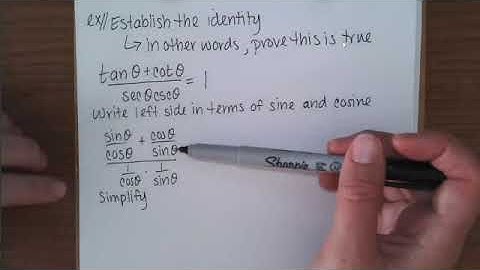 ex// Establish the identity
↳ in other words, prove this is true
tanθ + cotθ / secθcscθ = 1
Write left side in terms of sine and cosine
sinθ/cosθ + cosθ/sinθ
1/cosθ · 1/sinθ
Simplify
Sharpie